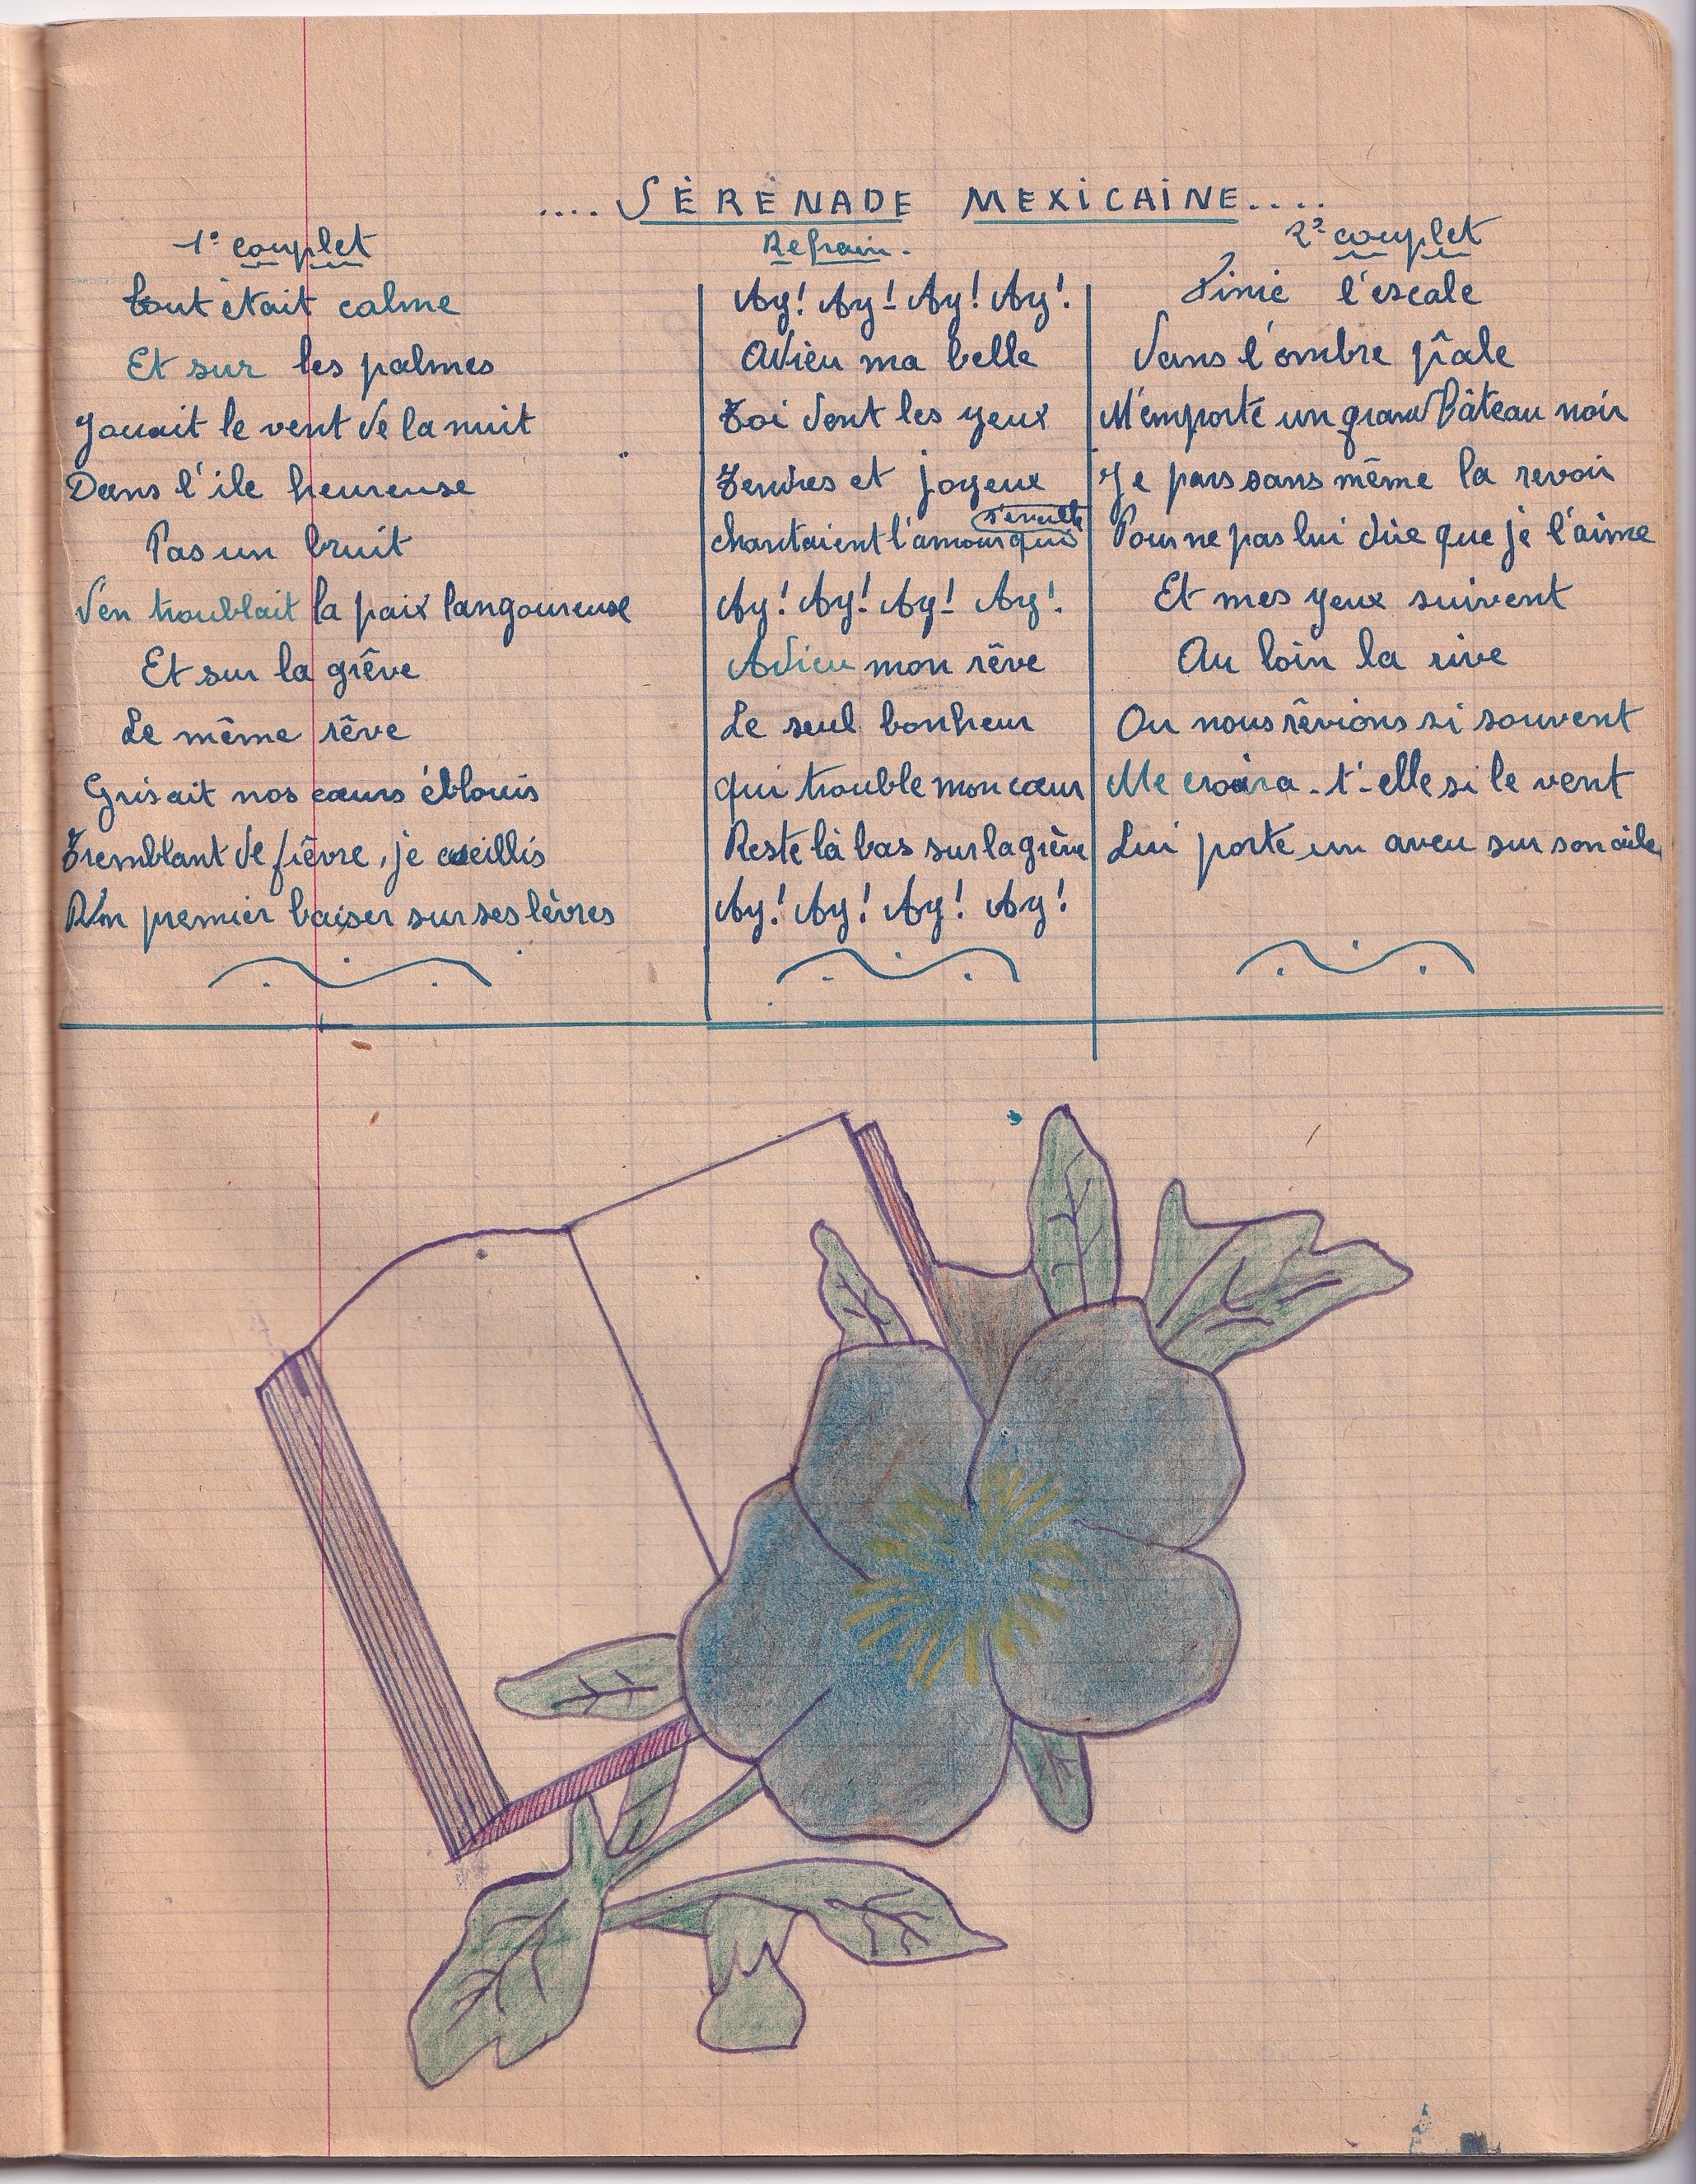 .... SÉRÉNADE MEXICAINE....
1° couplet
Tout était calme
Et sur les palmes
Jouait le vent de la nuit
Dans l'ile heureuse
Pas un bruit
N'en troublait la paix langoureuse
Et sur la grêve
Le même rêve
Grisait nos cœurs éblouis
Tremblant de fièvre, je cueillis
Un premier baiser sur ses lèvres
Refrain.
Ay! Ay! Ay! Ay!
Adieu ma belle
Toi dont les yeux
Tendres et joyeux
Chantaient l'amour qui
Ay! Ay! Ay! Ay!
Adieu mon rêve
Le seul bonheur
qui trouble mon cœur
Reste là bas sur la grève
Ay! Ay! Ay! Ay!
2° couplet
Finie l'escale
Dans l'ombre pâle
M'emporte un grand bâteau noir
Je pars sans même la revoir
Pour ne pas lui dire que je l'aime
Et mes yeux suivent
Au loin la rive
Ou nous rêvions si souvent
Me croira-t'-elle si le vent
Lui porte un aveu sur son aile